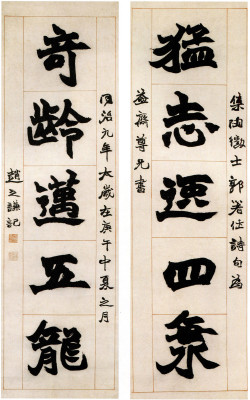 猛志逸四海
集陶徵士郭著作詩句為
益齋尊兄書
奇齡邁五龍
同治九年大歲在庚午中夏之月
趙之謙記